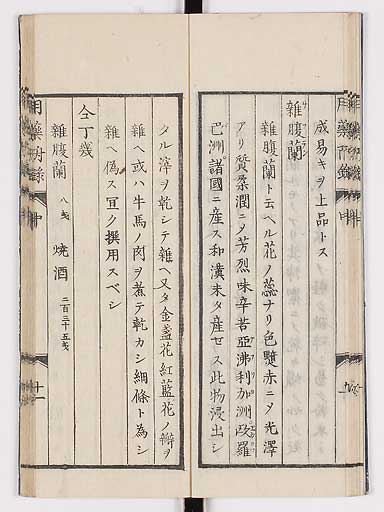 成易キヲ上品トス
雜腹蘭
雜腹蘭ト云ヘル花ノ蕊ナリ色豔赤ニ〆光澤
アリ質柔潤ニ〆芳烈味辛苦亞沸利加洲歐羅
巴洲諸國ニ産ス和漢未タ産セス此物浸出シ
タル滓ヲ乾シテ雜ヘ又タ金盞花紅藍花ノ瓣ヲ
雜ヘ或ハ牛馬ノ肉ヲ煮テ乾カシ細條ト為シ
雜ヘ偽ス宜ク撰用スベシ
仝丁幾
雜腹蘭 八戔 焼酒 二百三十五戔
十一